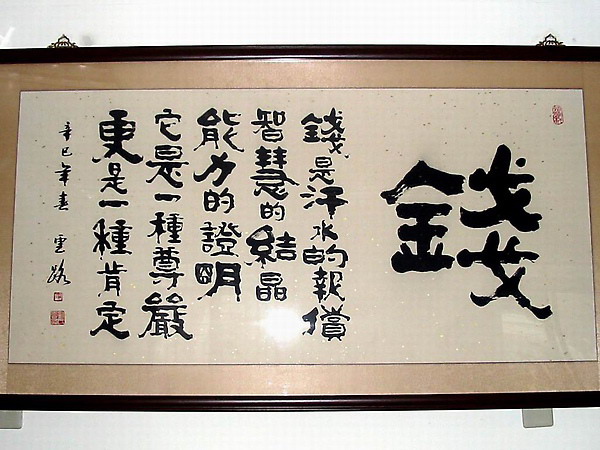 錢
錢是汗水的報償
智慧的結晶
能力的證明
它是一種尊嚴
更是一種肯定
辛巳年春 雲路